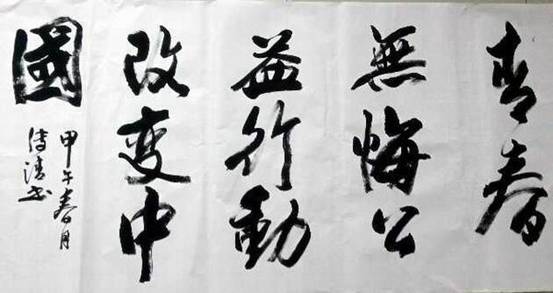 青春
無悔公
益行動
改变中
國
甲午春月
诗清书